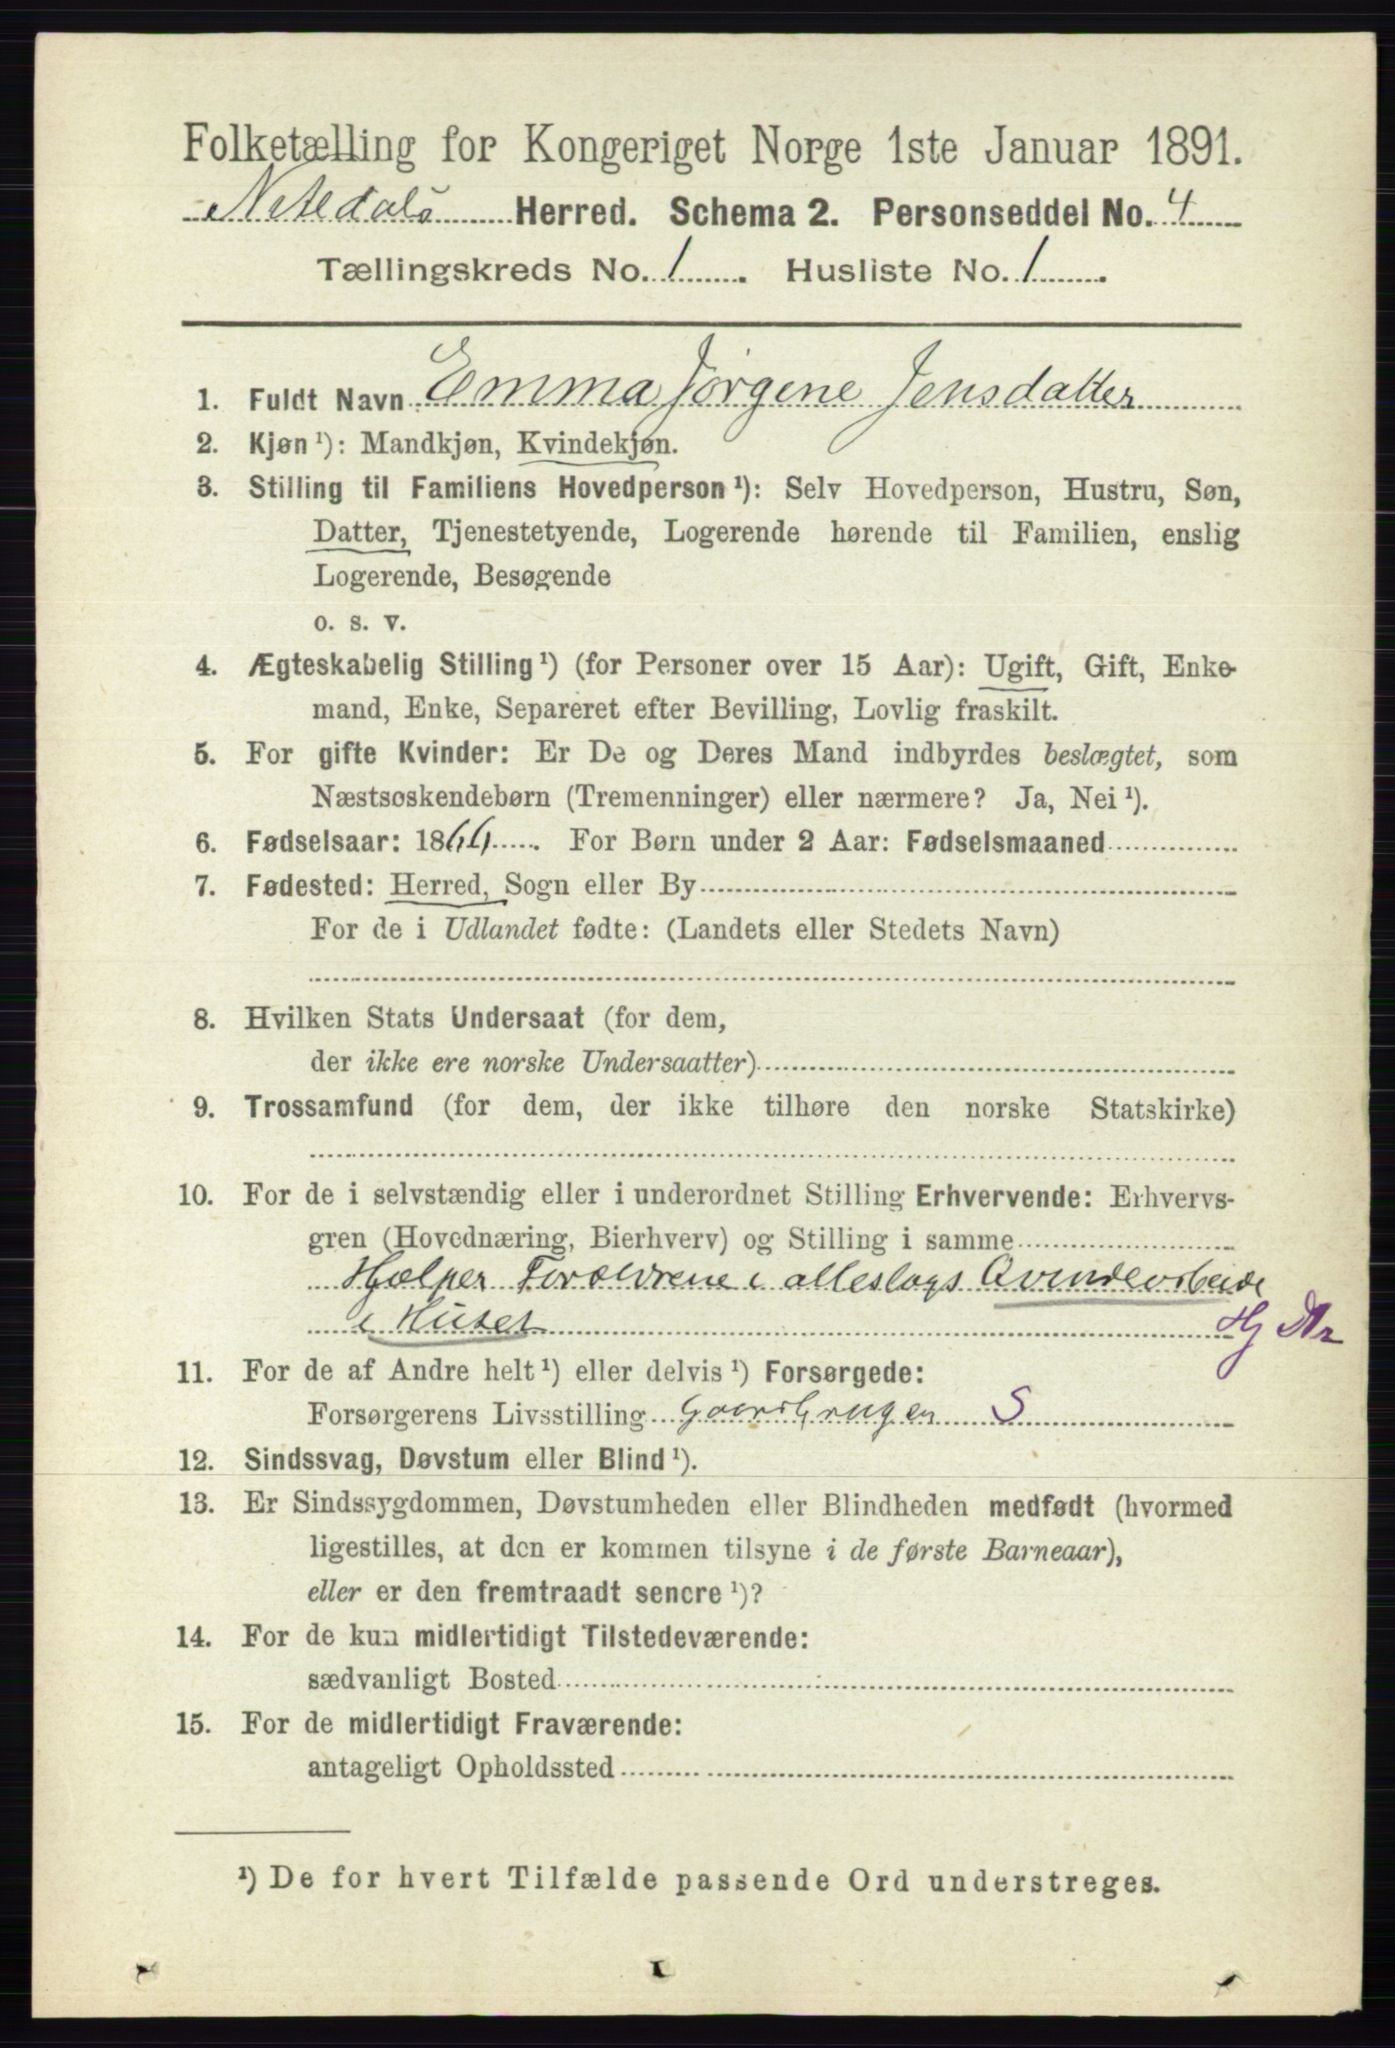 Folketælling for Kongeriget Norge 1ste Januar 1891.
Nitedals Herred. Schema 2. Personseddel No. 4
Tællingskreds No. 1. Husliste No. 1.
1. Fuldt Navn Emma Jørgene Jensdatter
2. Kjøn ¹): Mandkjøn, Kvindekjøn.
3. Stilling til Familiens Hovedperson ¹): Selv Hovedperson, Hustru, Søn,
Datter, Tjenestetyende, Logerende hørende til Familien, enslig
Logerende, Besøgende
o. s. v.
4. Ægteskabelig Stilling ¹) (for Personer over 15 Aar): Ugift, Gift, Enke-
mand, Enke, Separeret efter Bevilling, Lovlig fraskilt.
5. For gifte Kvinder: Er De og Deres Mand indbyrdes beslægtet, som
Næstsøskendebørn (Tremenninger) eller nærmere? Ja, Nei ¹).
6. Fødselsaar: 1864. For Børn under 2 Aar: Fødselsmaaned
7. Fødested: Herred, Sogn eller By
For de i Udlandet fødte: (Landets eller Stedets Navn)
8. Hvilken Stats Undersaat (for dem,
der ikke ere norske Undersaatter)
9. Trossamfund (for dem, der ikke tilhøre den norske Statskirke)
10. For de i selvstændig eller i underordnet Stilling Erhvervende: Erhvervs-
gren (Hovednæring, Bierhverv) og Stilling i samme
Hjælper Forældrene i alleslags Qvindearbeide
i Huset Hj Dtr
11. For de af Andre helt ¹) eller delvis ¹) Forsørgede:
Forsørgerens Livsstilling Gaardbruger S
12. Sindssvag, Døvstum eller Blind ¹).
13. Er Sindssygdommen, Døvstumheden eller Blindheden medfødt (hvormed
ligestilles, at den er kommen tilsyne i de første Barneaar),
eller er den fremtraadt senere ¹)?
14. For de kun midlertidigt Tilstedeværende:
sædvanligt Bosted
15. For de midlertidigt Fraværende:
antageligt Opholdssted
¹) De for hvert Tilfælde passende Ord understreges.